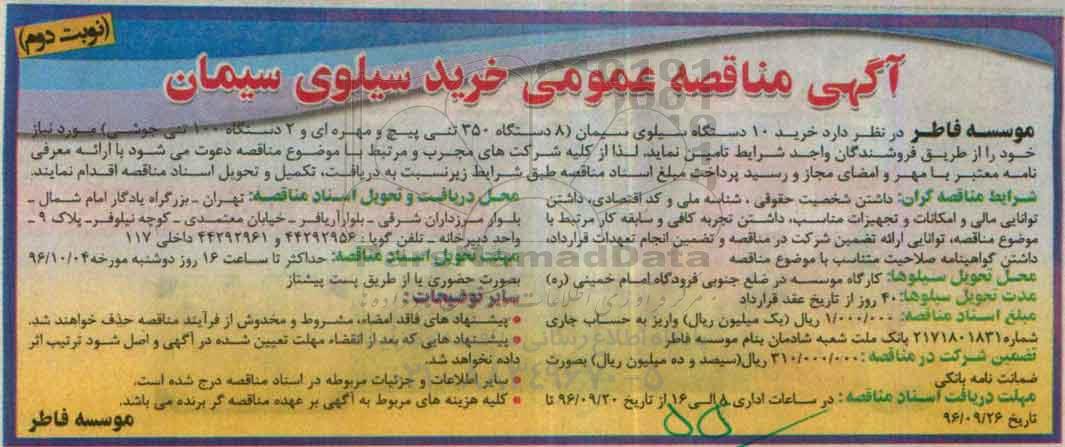 (نوبت دوم)
آگهی مناقصه عمومی خرید سیلوی سیمان
موسسه فاطر در نظر دارد خرید ۱۰ دستگاه سیلوی سیمان (۸ دستگاه ۳۵۰ تنی پیچ و مهره ای و ۲ دستگاه ۱۰۰ تنی جوشی) مورد نیاز
خود را از طریق فروشندگان واجد شرایط تامین نماید. لذا از کلیه شرکت های مجرب و مرتبط با موضوع مناقصه دعوت می شود با ارائه معرفی
نامه معتبر با مهر و امضای مجاز و رسید پرداخت مبلغ اسناد مناقصه طبق شرایط زیرنسبت به دریافت، تکمیل و تحویل اسناد مناقصه اقدام نمایند.
شرایط مناقصه گران: داشتن شخصیت حقوقی ، شناسه ملی و کد اقتصادی، داشتن
توانایی مالی و امکانات و تجهیزات مناسب، داشتن تجربه کافی و سابقه کار مرتبط با
موضوع مناقصه، توانایی ارائه تضمین شرکت در مناقصه و تضمین انجام تعهدات قرارداد،
داشتن گواهینامه صلاحیت متناسب با موضوع مناقصه
محل تحویل سیلوها: کارگاه موسسه در ضلع جنوبی فرودگاه امام خمینی (ره)
مدت تحویل سیلوها: ۴۰ روز از تاریخ عقد قرارداد
مبلغ اسناد مناقصه: ۱/۰۰۰/۰۰۰ ریال (یک میلیون ریال) واریز به حساب جاری
شماره ۲۱۷۱۸۰۱۸۳۱ بانک ملت شعبه شادمان بنام موسسه فاطر
تضمین شرکت در مناقصه: ۳۱۰/۰۰۰/۰۰۰ ریال(سیصد و ده میلیون ریال) بصورت
ضمانت نامه بانکی
مهلت دریافت اسناد مناقصه: در ساعات اداری ۸ الی ۱۶ از تاریخ ۹۶/۰۹/۲۰ تا
تاریخ ۹۶/۰۹/۲۶
محل دریافت و تحویل اسناد مناقصه: تهران ـ بزرگراه یادگار امام شمال ـ
بلوار سرزداران شرقی ـ بلوار آریافر ـ خیابان معتمدی ـ کوچه نیلوفر ـ پلاک ۹ ـ
واحد دبیرخانه ـ تلفن گویا: ۴۴۲۹۲۹۵۶ و ۴۴۲۹۲۹۶۱ داخلی ۱۱۷
مهلت تحویل اسناد مناقصه: حداکثر تا ساعت ۱۶ روز دوشنبه مورخه ۹۶/۱۰/۰۴
بصورت حضوری یا از طریق پست پیشتاز
سایر توضیحات:
• پیشنهاد های فاقد امضاء، مشروط و مخدوش از فرآیند مناقصه حذف خواهند شد.
• پیشنهاد هایی که بعد از انقضاء مهلت تعیین شده در آگهی و اصل شود ترتیب اثر
داده نخواهد شد.
• سایر اطلاعات و جزئیات مربوطه در اسناد مناقصه درج شده است.
• کلیه هزینه های مربوط به آگهی بر عهده مناقصه گر برنده می باشد.
موسسه فاطر